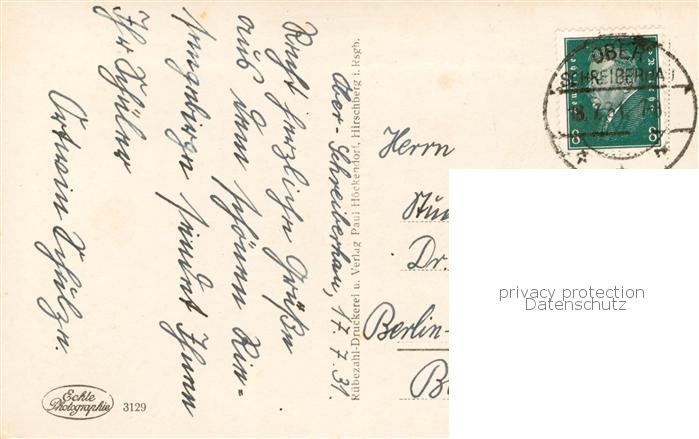 Ober-Schreiberhau, 17.7.31.
Recht herzliche Grüße
aus dem schönen Rie-
sengebirge sendet Ihnen
Ihr Schüler
Ortwin
Rübezahl-Druckerei u. Verlag Paul Höckendorf, Hirschberg i. Rsgb.
Echte
Photographie
3129
OBER
SCHREIBERHAU
8
8
Herrn
Stud
Dr.
Berlin-
privacy protection
Datenschutz